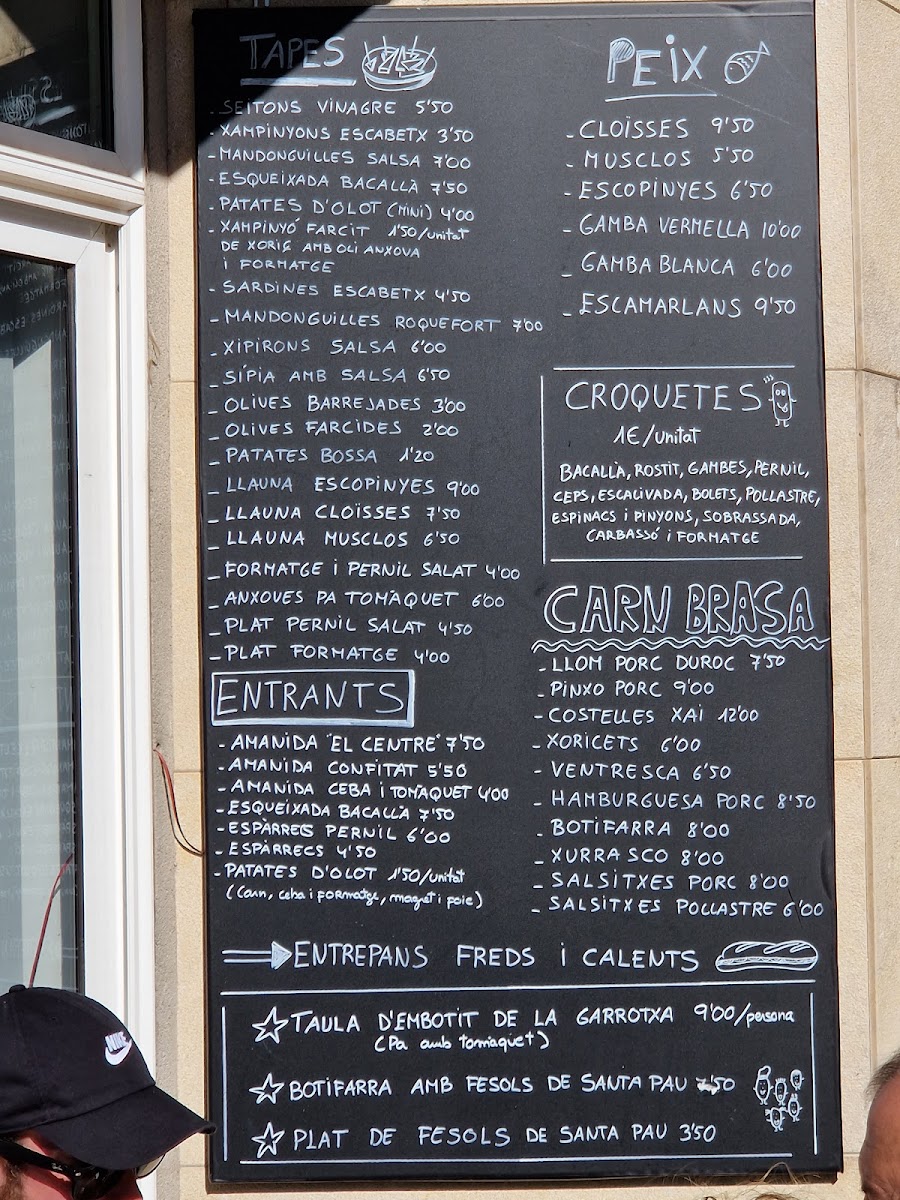 TAPES
- SEITONS VINAGRE 5'50
- XAMPINYONS ESCABETX 3'50
- MANDONGUILLES SALSA 7'00
- ESQUEIXADA BACALLÀ 7'50
- PATATES D'OLOT (MINI) 4'00
- XAMPINYÓ FARCIT 1'50/unitat
DE XORIÇ AMB OLI ANXOVA
I FORMATGE
- SARDINES ESCABETX 4'50
- MANDONGUILLES ROQUEFORT 7'00
- XIPIRONS SALSA 6'00
- SÍPIA AMB SALSA 6'50
- OLIVES BARREJADES 3'00
- OLIVES FARCIDES 2'00
- PATATES BOSSA 1'20
- LLAUNA ESCOPINYES 9'00
- LLAUNA CLOÏSSES 7'50
- LLAUNA MUSCLOS 6'50
- FORMATGE I PERNIL SALAT 4'00
- ANXOVES PA TOMÀQUET 6'00
- PLAT PERNIL SALAT 4'50
- PLAT FORMATGE 4'00
ENTRANTS
- AMANIDA "EL CENTRE" 7'50
- AMANIDA CONFITAT 5'50
- AMANIDA CEBA I TOMÀQUET 4'00
- ESQUEIXADA BACALLÀ 7'50
- ESPÀRRECS PERNIL 6'00
- ESPÀRRECS 4'50
- PATATES D'OLOT 1'50/unitat
(Carn, ceba i formatge, magret i foie)
PEIX
- CLOÏSSES 9'50
- MUSCLOS 5'50
- ESCOPINYES 6'50
- GAMBA VERMELLA 10'00
- GAMBA BLANCA 6'00
- ESCAMARLANS 9'50
CROQUETES
1€/unitat
BACALLÀ, ROSTIT, GAMBES, PERNIL,
CEPS, ESCALIVADA, BOLETS, POLLASTRE,
ESPINACS I PINYONS, SOBRASSADA,
CARBASSÓ I FORMATGE
CARN BRASA
- LLOM PORC DUROC 7'50
- PINXO PORC 9'00
- COSTELLES XAI 12'00
- XORICETS 6'00
- VENTRESCA 6'50
- HAMBURGUESA PORC 8'50
- BOTIFARRA 8'00
- XURRASCO 8'00
- SALSITXES PORC 8'00
- SALSITXES POLLASTRE 6'00
ENTREPANS FREDS I CALENTS
TAULA D'EMBOTIT DE LA GARROTXA 9'00/persona
(Pa amb tomàquet)
BOTIFARRA AMB FESOLS DE SANTA PAU 7'50
PLAT DE FESOLS DE SANTA PAU 3'50
NIKE